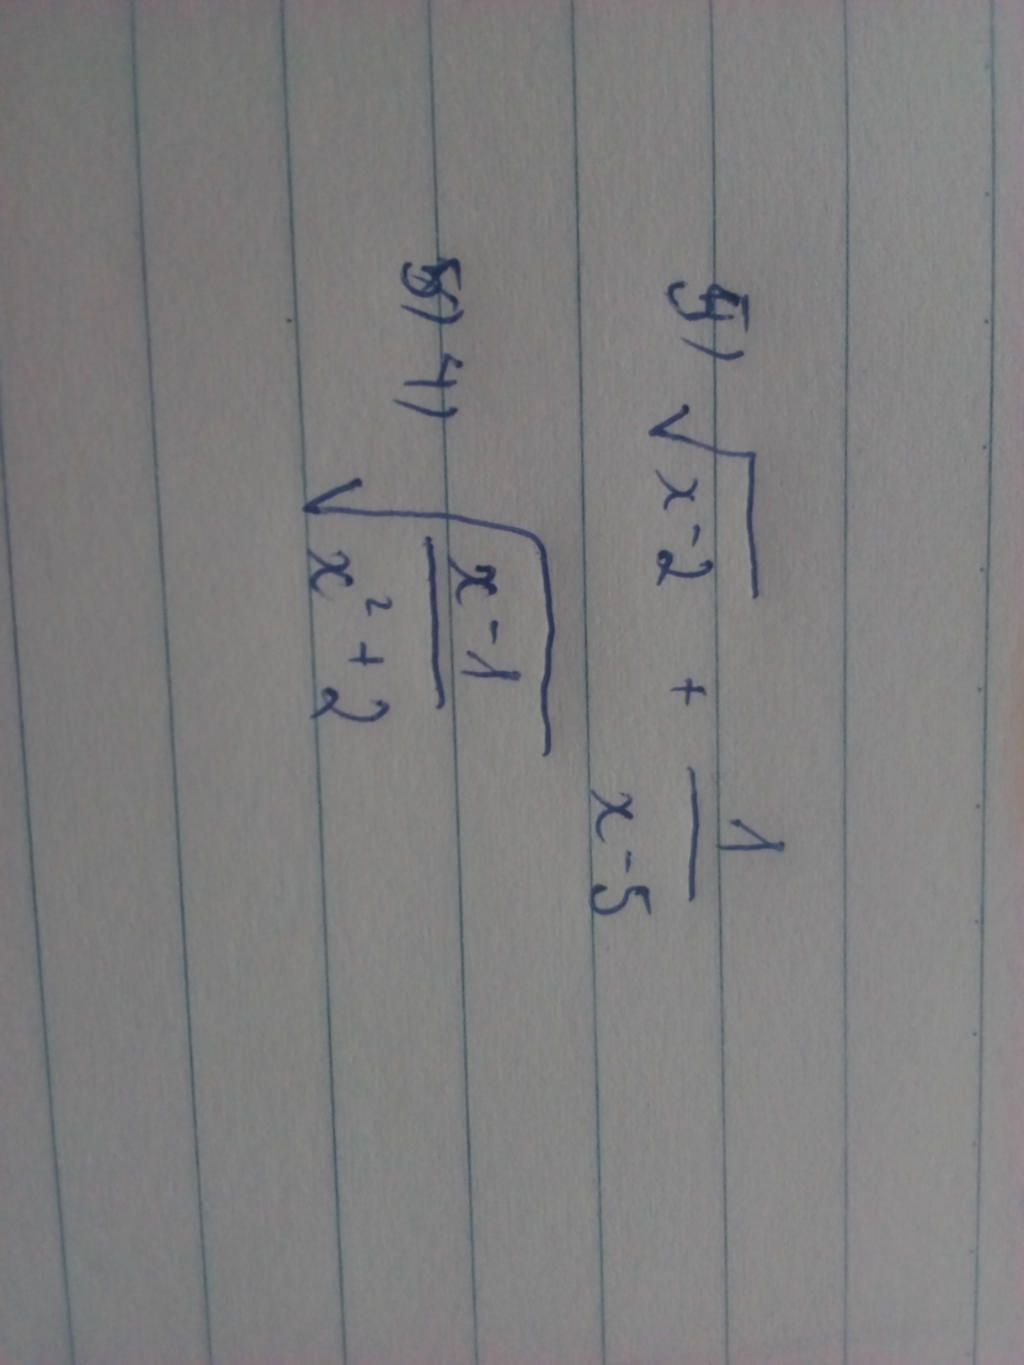 5) √(x-2) + 1/(x-5)
4) √((x-1)/(x²+2))